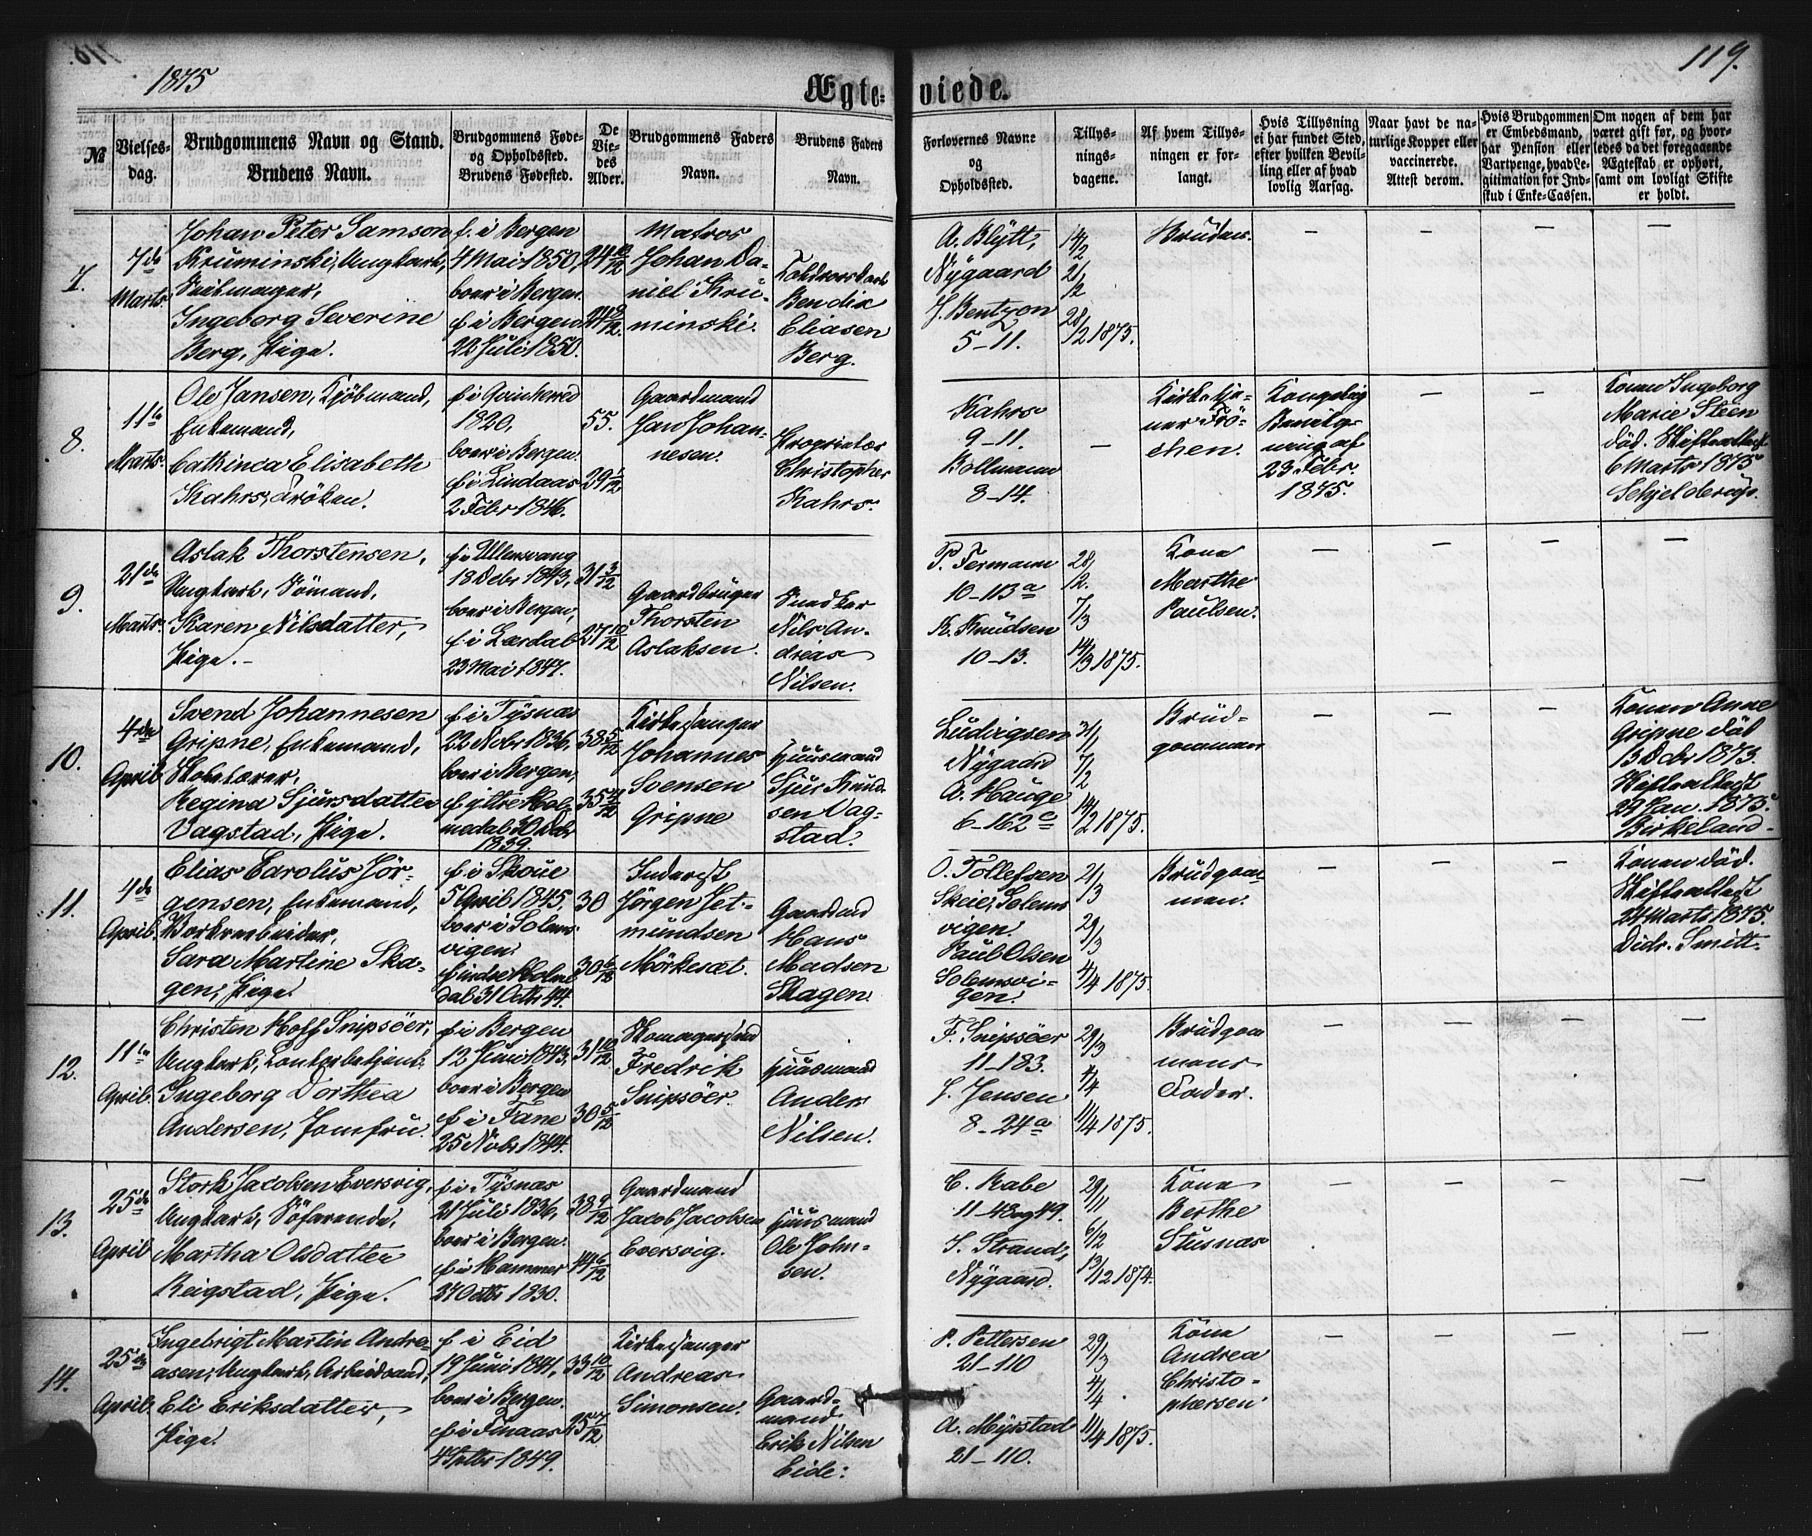 1875
119.
Ægte-
viede.
№
Vielses-
dag.
Brudgommens Navn og Stand.
Brudens Navn.
Brudgommens Føde-
og Opholdssted.
Brudens Fødested.
De
Vie-
des
Alder.
Brudgommens Faders
Navn.
Brudens Faders
Navn.
Forlovernes Navne
og
Opholdssted.
Tillys-
nings-
dagene.
Af hvem Tillys-
ningen er for-
langt.
Hvis Tillysning
ei har fundet Sted,
efter hvilken Bevil-
ling eller af hvad
lovlig Aarsag.
Naar havt de na-
turlige Kopper eller
vaccinerede.
Attest derom.
Hvis Brudgommen
er Embedsmand,
har Pension eller
Vartpenge, hvad Le-
gitimation for Ind-
skud i Enke-Cassen.
Om nogen af dem har
været gift før, og hvor-
ledes da det foregaaende
Ægteskab er ophørt,
samt om lovligt Skifte
er holdt.
7.
7de
Marts
Johan Peter Samson
Kruminski, Ungkarl,
Seilmager,
Ingeborg Severine
Berg, Pige.
f. i Bergen
4 Mai 1850,
boer i Bergen.
f. i Bergen
22 Juli 1850.
24 10/12
24 8/12.
Matros
Johan Da-
niel Kru-
minski.
Bendix
Eliasen
Berg.
A. Blytt,
Nygaard
J. Bentzon
5-11.
14/2
21/2
28/2 1875.
Bruden.
—
—
—
—
8.
11te
Marts
Ole Jansen, Kjøbmand,
Enkemand,
Cathinca Elisabeth
Kahrs, Frøken.
f. i Qvinherred
1820.
boer i Bergen.
f. i Lindaas
2 Febr 1846.
55.
29 1/12
Gaardmand
Jan Johan-
nesen.
Proprietær
Christopher
Kahrs.
Kahrs
9-11.
Bollmann
8-14.
—
Kirketje-
ner Frö-
chen.
Kongelig
Bevilg-
ning af
23 Febr.
1875.
—
—
Konen Ingeborg
Marie Steen
död. Skifteattest
6 Marts 1875
Schjelderup.
9.
21de
Marts.
Aslak Thorstensen,
Ungkarl, Sömand,
Karen Nilsdatter,
Pige.-
f. i Ullensvang
18 Decbr 1843,
boer i Bergen,
f. i Lærdal
23 Mai 1847.
31 3/12
27 10/12
Gaardbruger
Thorsten
Aslaksen.
Snedker
Nils An-
dreas
Nilsen.
P. Fermann
10-113a
K. Knudsen
10-13.
28/2.
7/3
14/3 1875.
Kona
Marthe
Paulsen.
—
—
—
—
10.
4de
April
Svend Johannesen
Gripne, Enkemand,
Skolelærer,
Regina Sjursdatter
Vagstad, Pige.
f. i Tysnæs
22 Novbr 1836,
boer i Bergen,
f. i ytre Holm-
medal 30 Octbr
1839.
38 5/12
35
Kirkesanger
Johannes
Svensen
Gripne
Huusmand
Sjur Knud-
sen Vag-
stad.
Ludvigsen
Nygaard
A. Hauge
6-162c
31/1
7/2
14/2 1875.
Brud-
gommen
—
—
—
Konen Anne
Gripne död
Skifteattest
29 Jan. 1875.
Birkeland.
11.
4de
April.
Elias Carolus Jör-
gensen, Enkemand,
Værksarbeider,
Sara Martine Ska-
gen, Pige.
f. i Skoue
5 April 1845,
boer i Solems-
vigen.
f. indre Holme-
dal 31 Octbr 44.
30
Inderst
Jörgen Jet-
mundsen
Mörkesæt.
Gaardmd
Hans
Madsen
Skagen.
O. Tollefsen
Skeie, Solems-
vigen.
Paul Olsen
Solemsvi-
gen.
21/3
29/3
4/4 1875.
Brudgom-
men.
—
—
—
Konen död.
Skifteattest
24 Marts 1875.
Didr. Smitt.
12.
11te
April
Christen Hoff Snipsöer,
Ungkarl, Contorbetjent.
Ingeborg Dorthea
Andersen, Jomfru.
f. i Bergen
12 Juni 1843,
boer i Bergen
f. i Fane
25 Novbr 1844.
31 10/12
30 5/12
Skomagersvend
Fredrik
Snipsöer.
Huusmand
Anders
Nilsen.
F. Snipsöer
11-183.
J. Jensen
8-24a
29/3
4/4
11/4 1875.
Brudgom
mens
Fader.
—
—
—
—
13.
25de
April
Stork Jacobsen Eversvig,
Ungkarl, Söfarende,
Martha Olsdatter
Reigstad, Pige.
f. i Tysnæs
21 Juli 1836,
boer i Bergen.
f. i Hammer
27 Octbr 1830.
38 9/12
44 6/12
Gaardmand
Jacob Jacobsen
Eversvig.
Huusmand
Ole John-
sen.
C. Rabe
11-48 og 49.
S. Strand,
Nygaard.
29/11
6/12
13/12 1874.
Kona
Berthe
Stusnæs
—
—
—
—
14.
25de
April.
Ingebrigt Martin Andre-
asen, Ungkarl, Arbeidsmd,
Eli Eriksdatter,
Pige.
f. i Eid
19 Juni 1841,
boer i Bergen.
f. i Finaas
1849.
33 10/12
25 7/12
Kirkesanger
Andreas
Simonsen.
Gaard-
mand
Erik Nilsen
Eide.
P. Pettersen
21-110
A. Myrstad
21-110.
29/3
4/4
11/4 1875.
Kona
Andrea
Christo-
phersen.
—
—
—
—